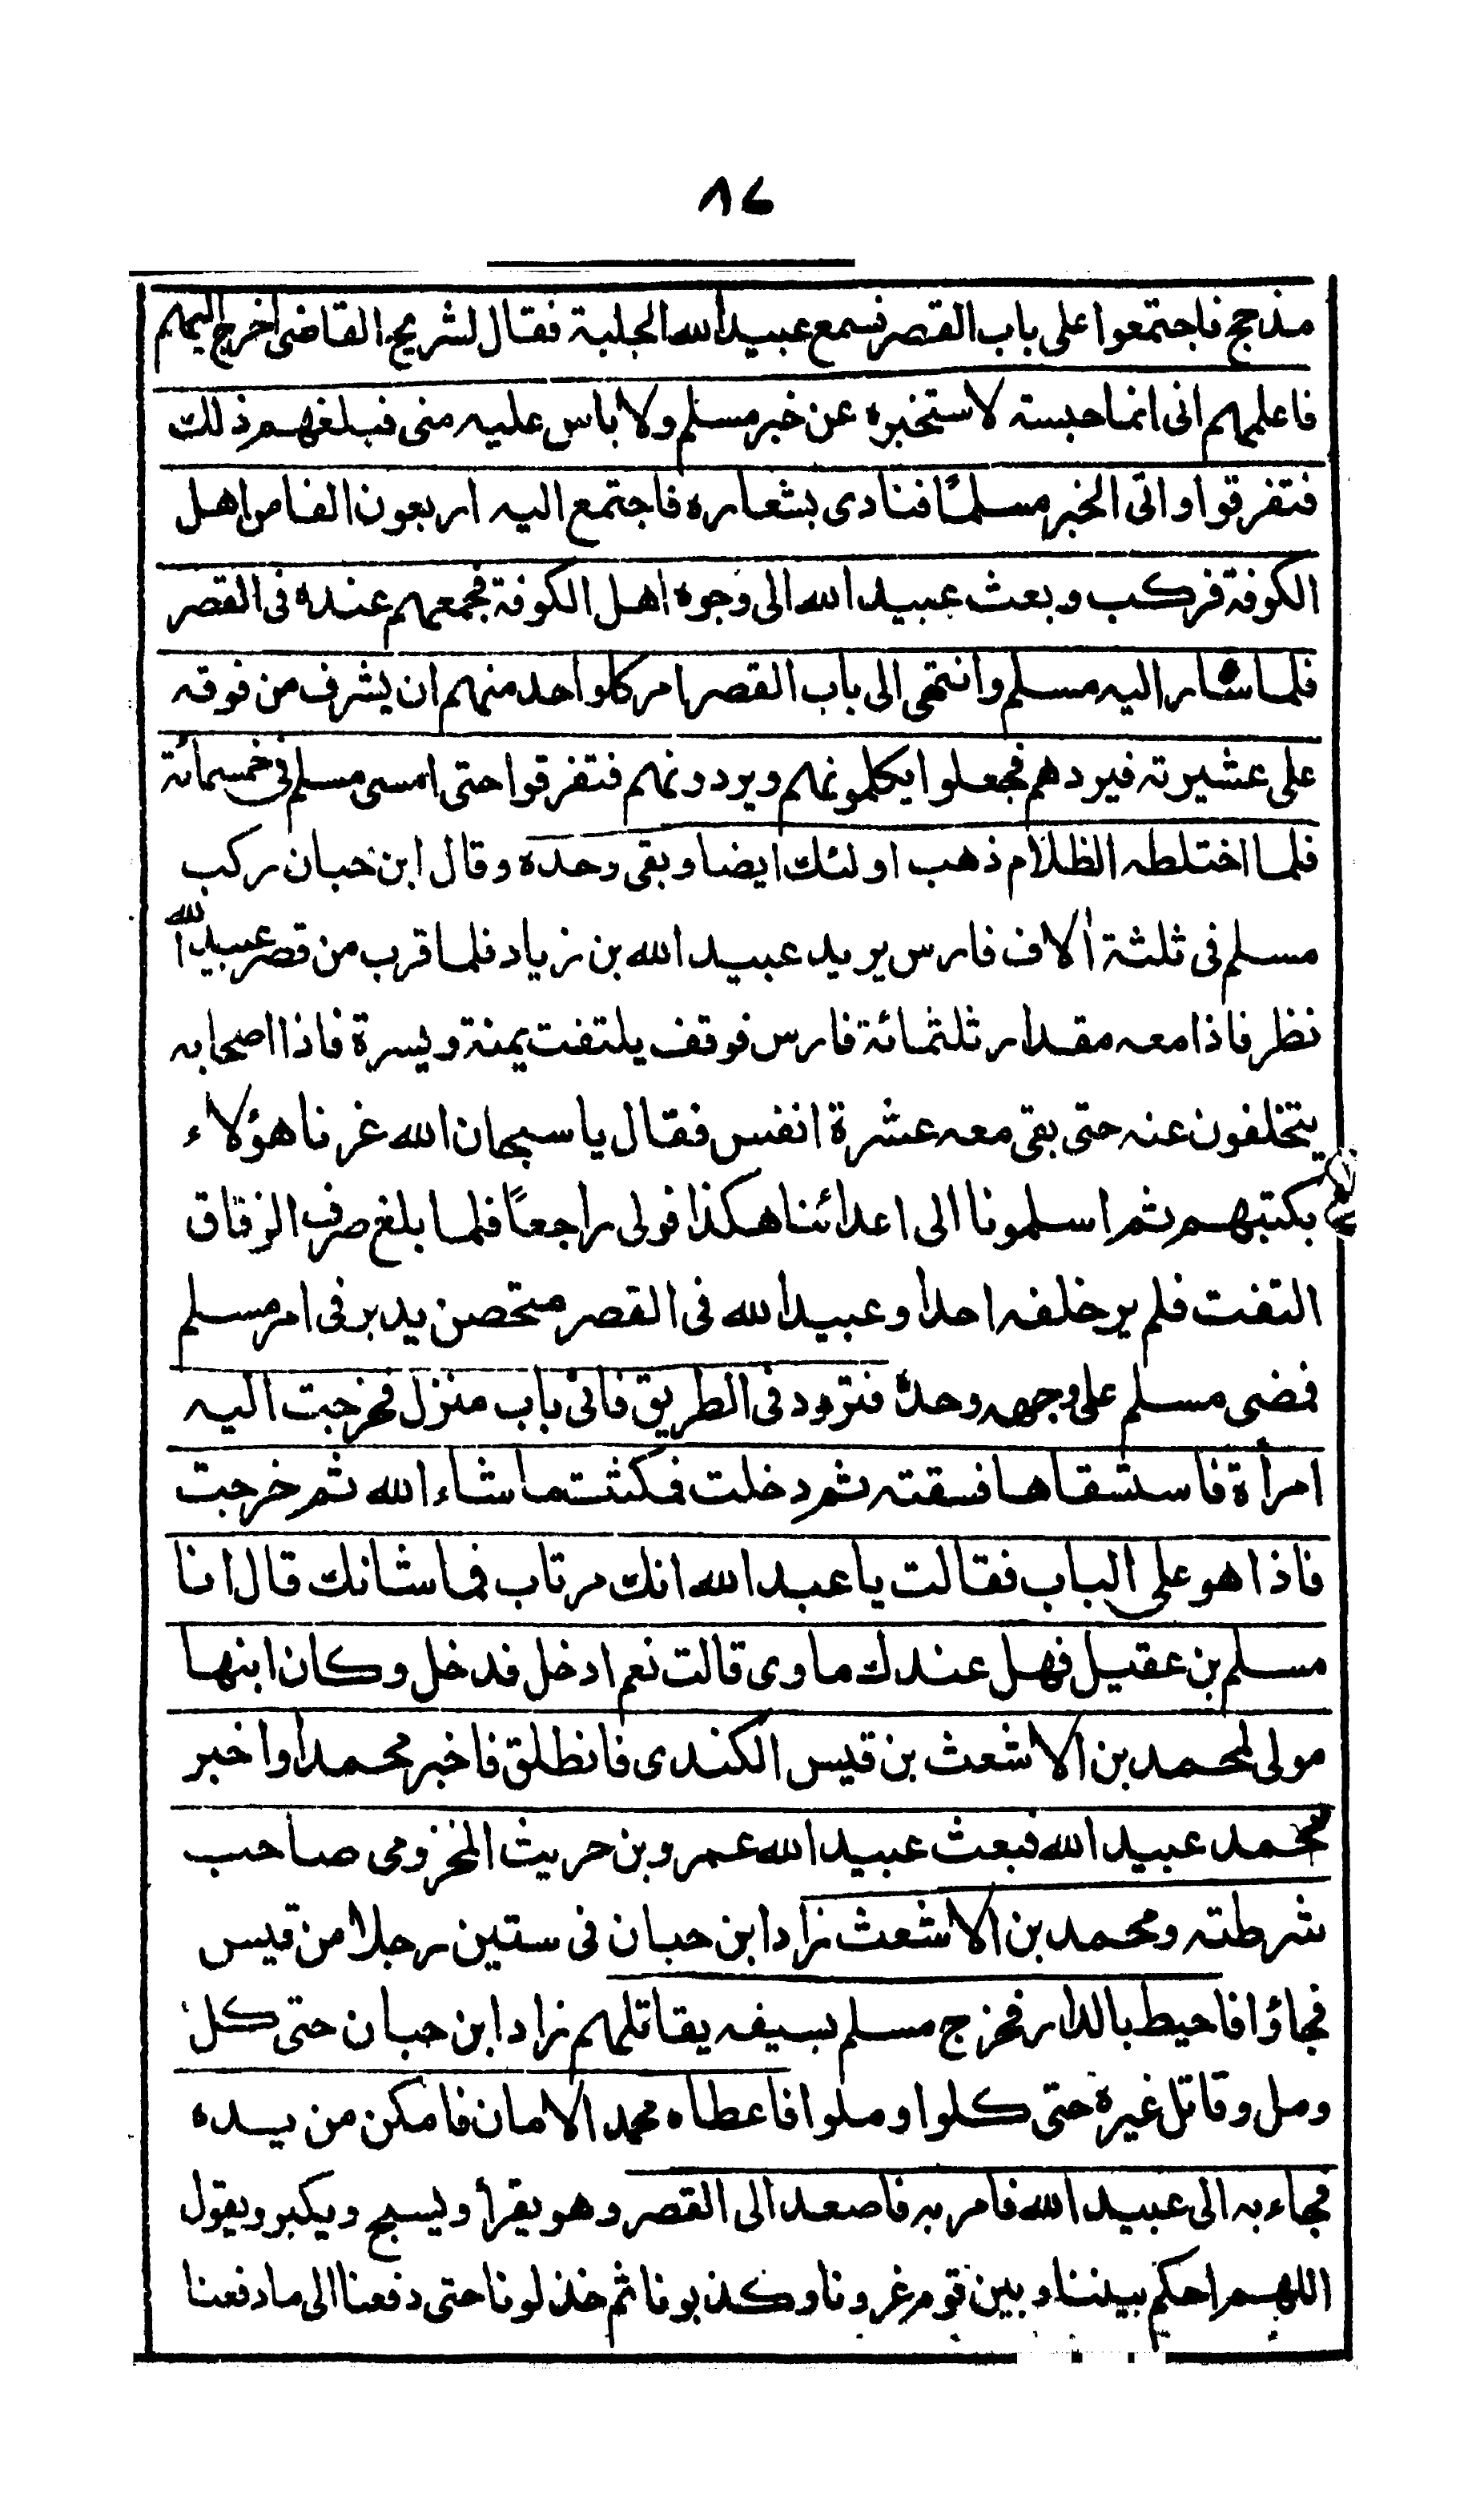 ٨٤
مذحج فاجتمعوا على باب القصر فسمع عبيد الله الجلبة فقال لشريح القاضى اخرج اليهم
فاعلمهم انى انما حبسته لاستخبره عن خبر مسلم ولا باس عليه منى فبلغهم ذلك
فتفرقوا واتى الخبر مسلمًا فنادى بشعاره فاجتمع اليه اربعون الفا من اهل
الكوفة فركب وبعث عبيد الله الى وجوه اهل الكوفة فجمعهم عنده فى القصر
فلما سار اليه مسلم وانتهى الى باب القصر امر كلواحد منهم ان يشرف من فوقه
على عشيرته فيردهم فجعلوا يكلمونهم ويردونهم فتفرقوا حتى امسى مسلم فى خمسمائة
فلما اختلطه الظلام ذهب اولئك ايضا وبقى وحده وقال ابن حبان ركب
مسلم فى ثلثة الاف فارس يريد عبيد الله بن زياد فلما قرب من قصر عبيد الله
نظر فاذا معه مقدار ثلثمائة فارس فوقف يلتفت يمنة ويسرة فاذا اصحابه
يتخلفون عنه حتى بقى معه عشرة انفس فقال يا سبحان الله غرنا هؤلاء
بكتبهم ثم اسلمونا الى اعدائنا هكذا فولى راجعاً فلما بلغ صرف الزقاق
التفت فلم ير خلفه احدا وعبيد الله فى القصر متحصن يدبر فى امر مسلم
فمضى مسلم على وجهه وحده فتردد فى الطريق فاتى باب منزل فخرجت اليه
امرأة فاستسقاها فسقته ثم دخلت فمكثت ما شاء الله ثم خرجت
فاذا هو على الباب فقالت يا عبد الله انك مرتاب فما شانك قال انا
مسلم بن عقيل فهل عندك ماوى قالت نعم ادخل فدخل وكان ابنها
مولى لمحمد بن الاشعث بن قيس الكندى فانطلق فاخبر محمدا واخبر
محمد عبيد الله فبعث عبيد الله عمرو بن حريث المخزومى صاحب
شرطته ومحمد بن الاشعث زاد ابن حبان فى ستين رجلا من قيس
فجاؤا فاحيط بالدار فخرج مسلم بسيفه يقاتلهم زاد ابن حبان حتى كل
ومل وقاتل غيرة حتى كلوا وملوا فاعطاه محمد الامان فامكن من يده
فجاء به الى عبيد الله فامر به فاصعد الى القصر وهو يقرأ ويسبح ويكبر ويقول
اللهم احكم بيننا وبين قوم غرونا وكذبونا ثم خذلونا حتى دفعنا الى ما دفعنا